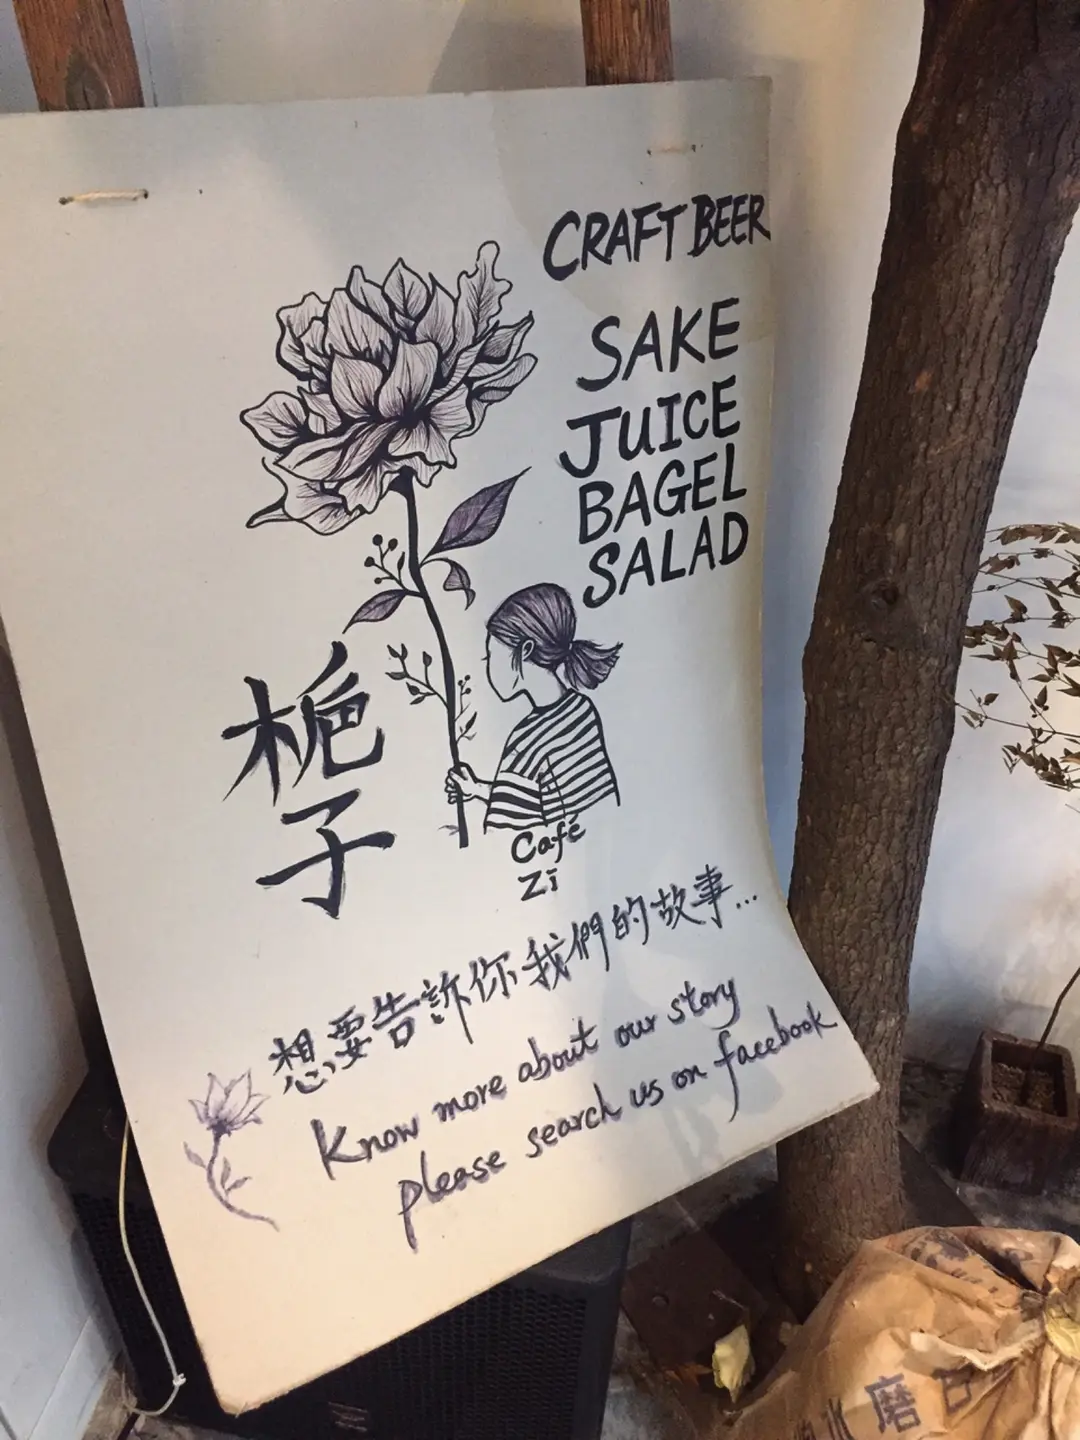 CRAFT BEER
SAKE
JUICE
BAGEL
SALAD
栀子
Café
Zī
想要告訴你我們的故事...
Know more about our story
please search us on facebook
水磨